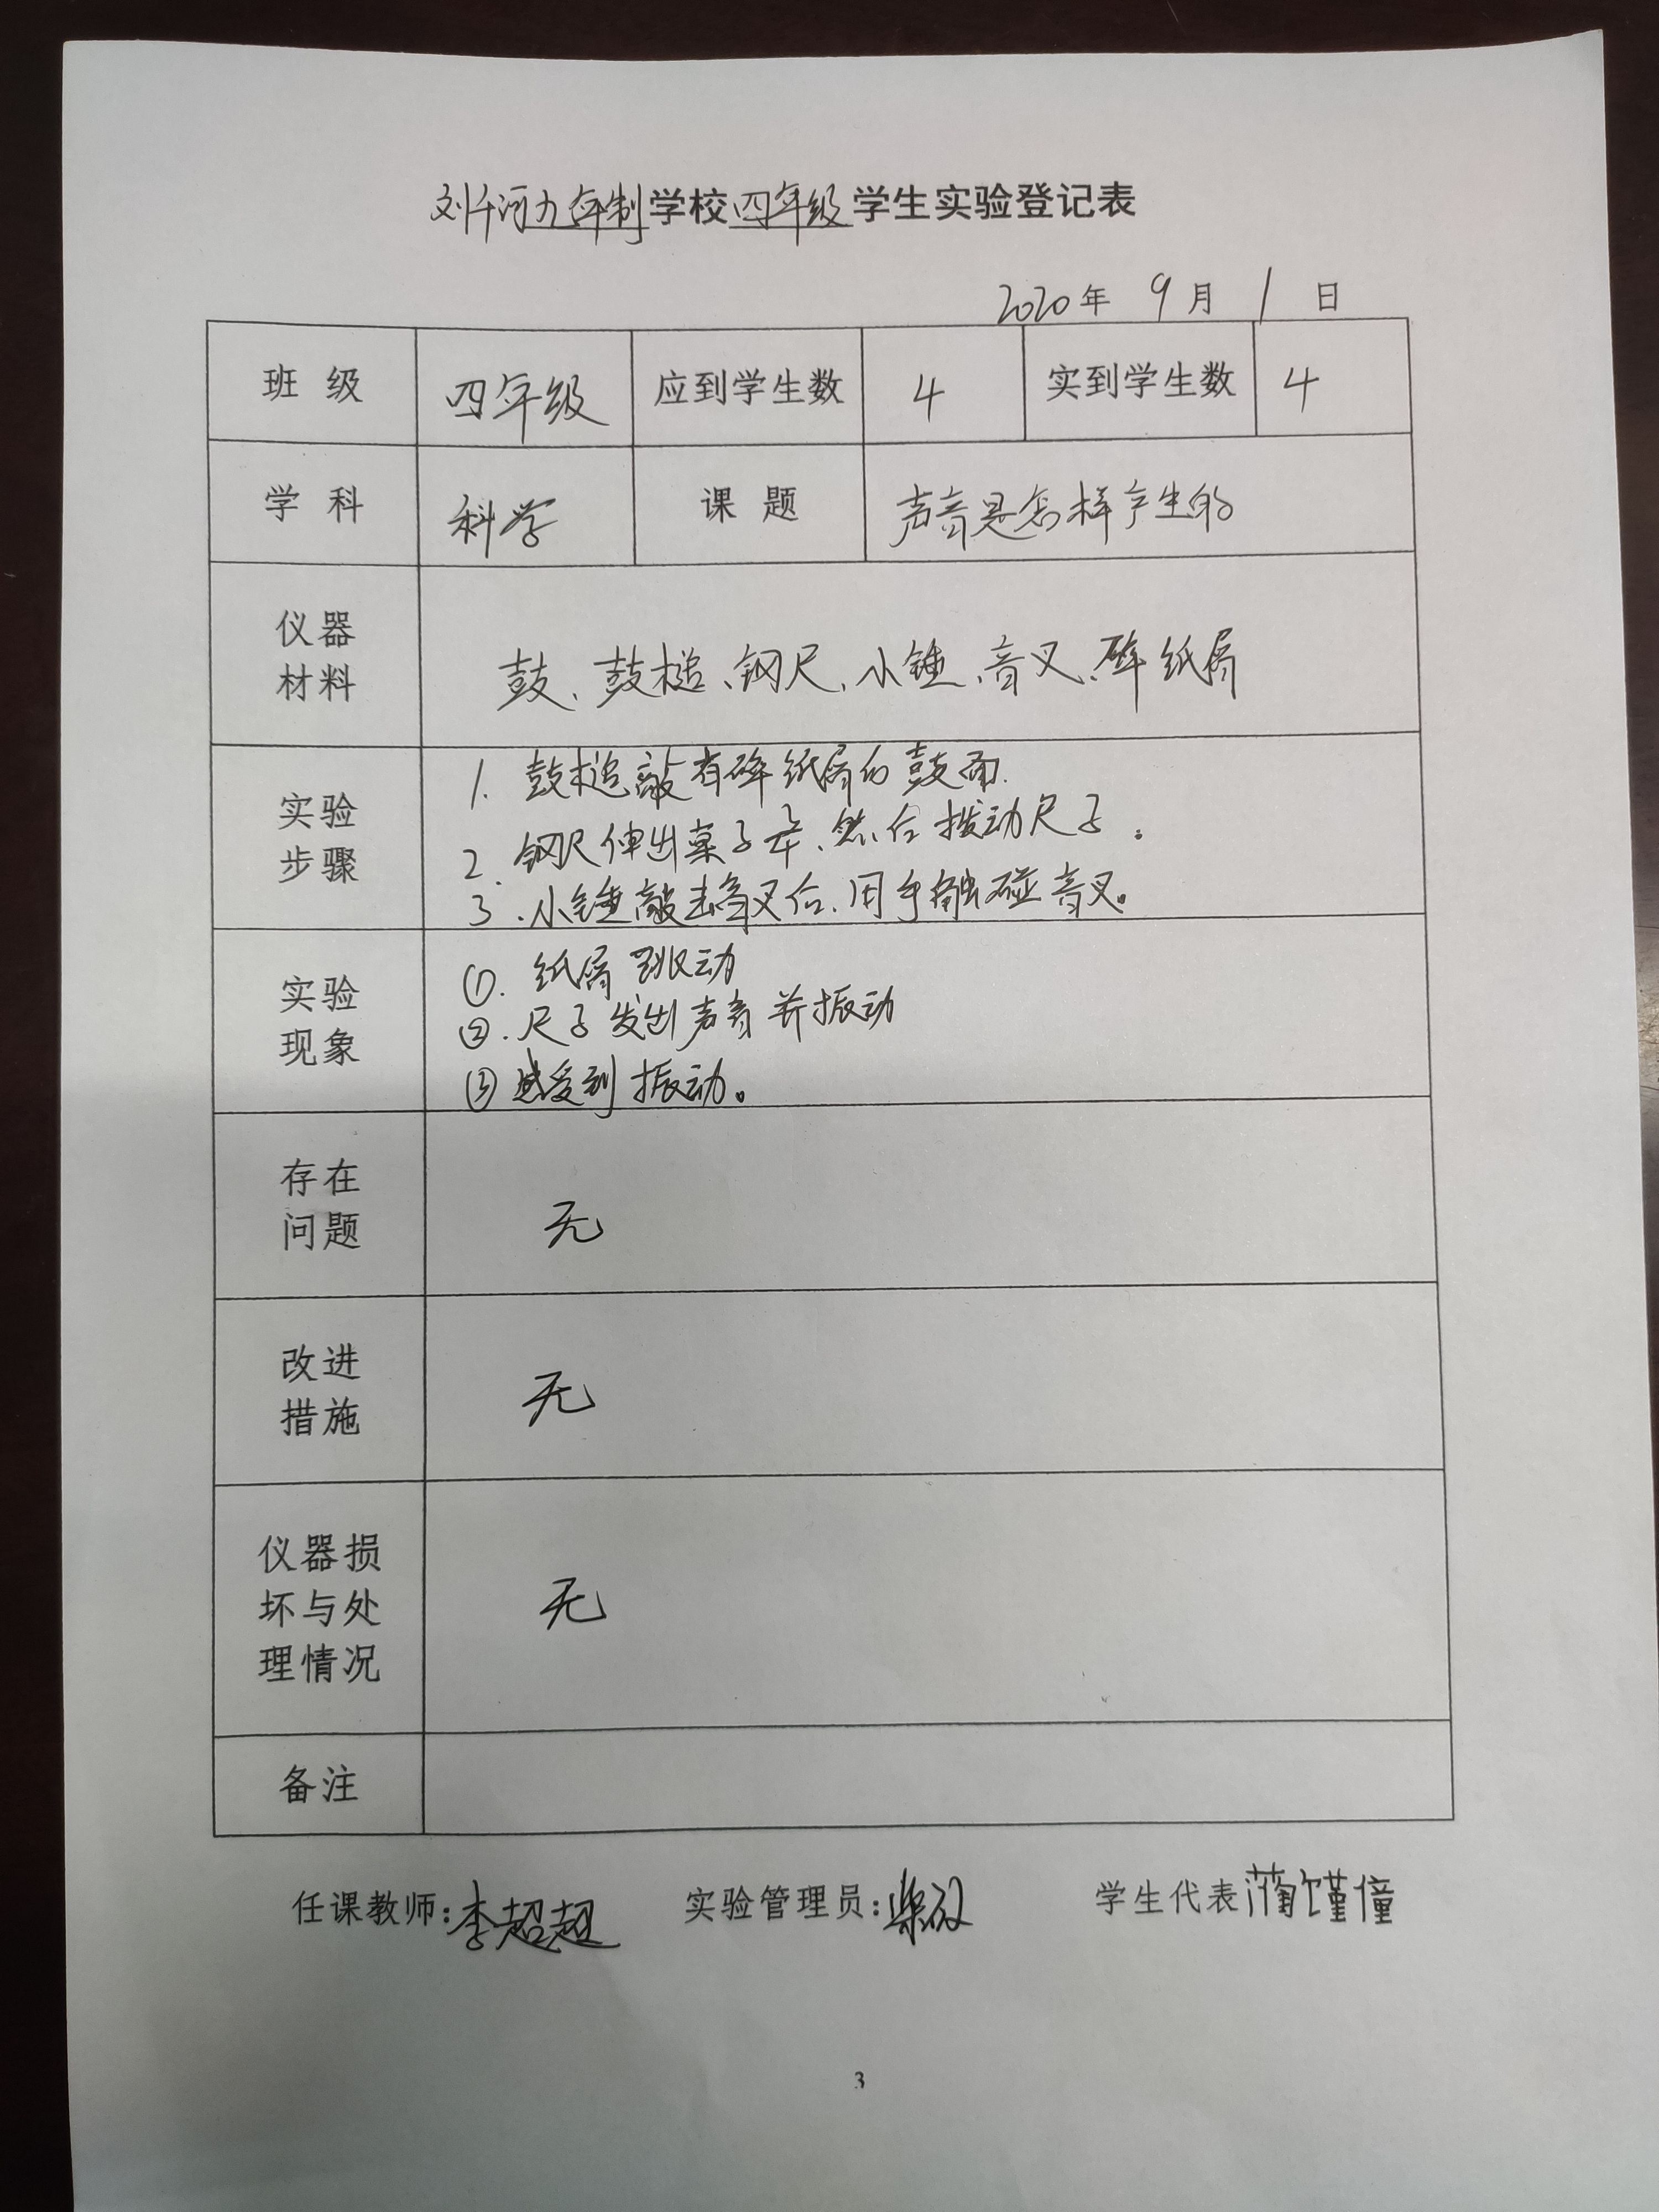 刘千河九年制学校四年级学生实验登记表
2020年 9月 1日
班 级 四年级 应到学生数 4 实到学生数 4
学 科 科学 课 题 声音是怎样产生的
仪器
材料
鼓、鼓槌、钢尺、小锤、音叉、碎纸屑
实验
步骤
1. 鼓槌敲有碎纸屑的鼓面.
2. 钢尺伸出桌子半、然后拨动尺子。
3. 小锤敲击音叉后、用手触碰音叉。
实验
现象
①. 纸屑跳动
②. 尺子发出声音并振动
③ 感受到振动。
存在
问题
无
改进
措施
无
仪器损
坏与处
理情况
无
备注
任课教师:李超超 实验管理员: 学生代表
3